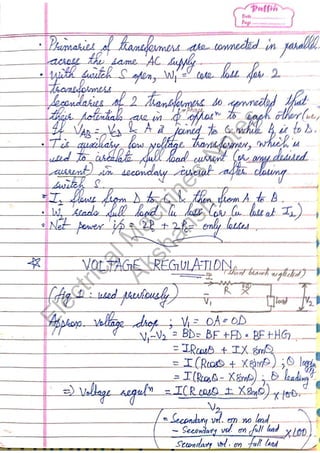 Puffin
Date
Page
• Primaries of transformers are connected in parallel
across the same AC supply.
• With switch S open, W₁ = core loss for 2
transformers
• Secondaries of 2 transformers so connected that
their potentials are in phase opposⁿ to each other (ie,
if V_AB = V_CD & A is joined to C while B is to D.
• T is auxiliary low voltage transformer, which is
used to circulate full load current (or any desired
current) in secondary circuit after closing
switch S.
• I₂ flows from D to C & then from A to B.
• W₂ reads full load Cu loss (or Cu loss at I₂)
• Net power i/p = only losses.
VOLTAGE REGULATION
(shunt branch neglected)
(fig 1 : used previously)
R X
V₁ load V₂
Approx. voltage drop ; V₁ = OA = OD
V₁-V₂ = BD = BF + FD = BF + HG
= IR cosθ + IX sinθ
= I (R cosθ + X sinθ) ; θ lagging
= I (R cosθ - X sinθ) ; θ leading
⇒ Voltage regulⁿ = I(R cosθ ± X sinθ) × 100.
V₂
(= Secondary vol. on no load
- Secondary vol. on full load × 100)
Secondary vol. on full load